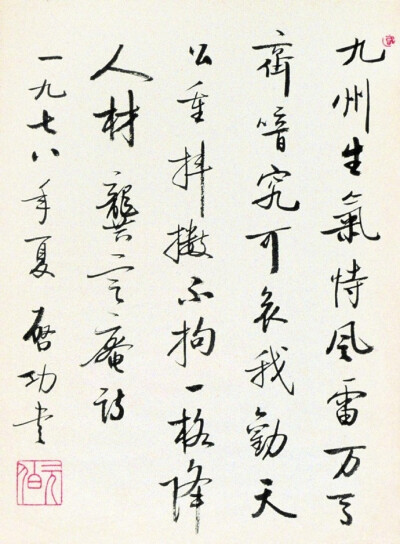 九州生氣恃風雷万馬
齊喑究可哀我勸天
公重抖擻不拘一格降
人材 龔定庵詩
一九七八年夏 啓功書
元伯